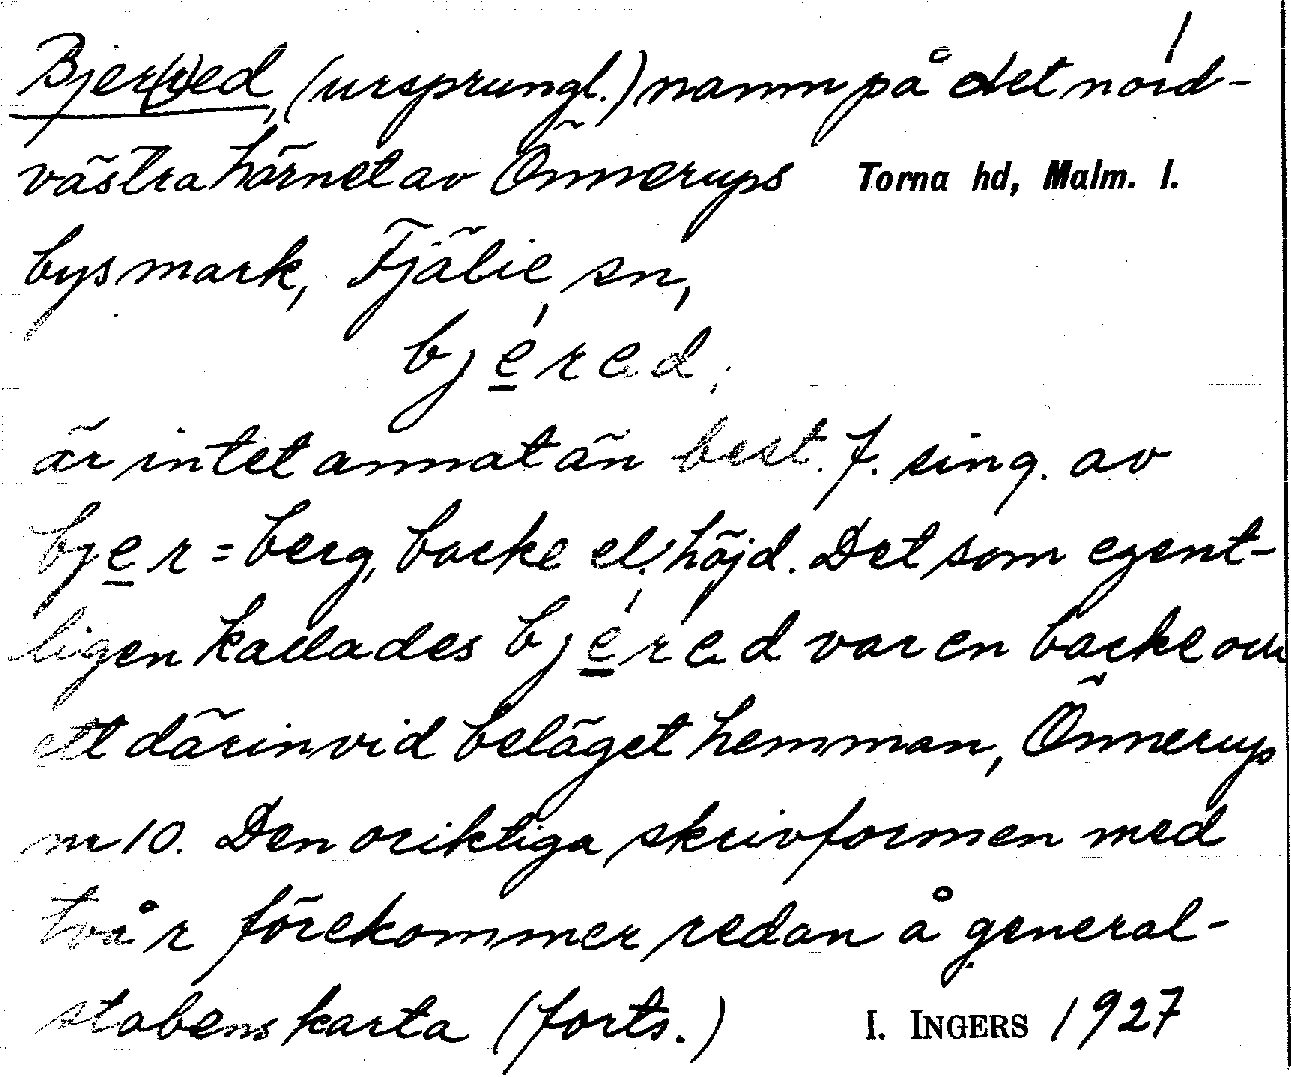 Bjer(r)ed, (ursprungl.) namn på det nord-
västra hörnet av Önnerups Torna hd, Malm. l.
bysmark, Fjälie sn,
bjéred,
är intet annat än best. f. sing. av
bjer = berg, backe el. höjd. Det som egent-
ligen kallades bjéred var en backe om
ett därinvid beläget hemman, Önnerups
nr 10. Den oriktiga skrivformen med
två r förekommer redan å general-
stabens karta (forts.) I. INGERS 1927